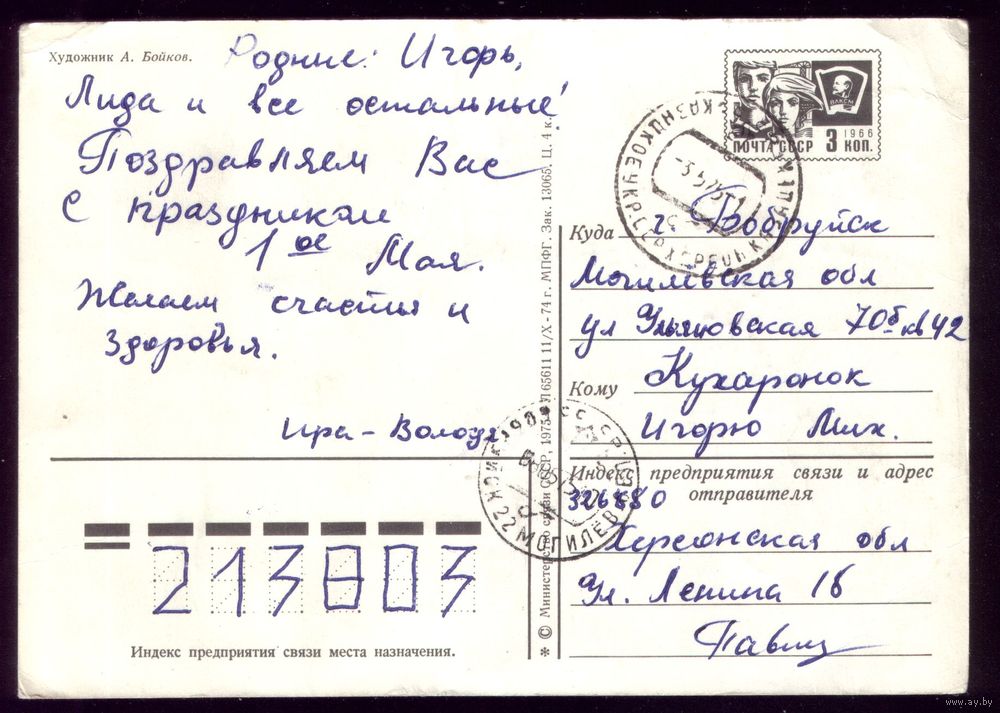 Художник А. Бойков.
Родные: Игорь,
Лида и все остальные!
Поздравляем Вас
с праздником
1ое Мая.
Желаем счастья и
здоровья.
Ира - Володя
ПОЧТА СССР 3 КОП. 1966
ВЛКСМ
Куда г. Бобруйск
Могилевская обл
ул Ульяновская 70б кв 42
Кому Кухаронок
Игорю Мих.
Индекс предприятия связи и адрес
отправителя
326880
Херсонская обл
Ул. Ленина 16
МОГИЛЕВ
213803
Индекс предприятия связи места назначения.
* © Министерство связи СССР, 1975 65611 11/X-74 г. МПФГ. Зак. 13065. Ц. 4 к.
www.ay.by